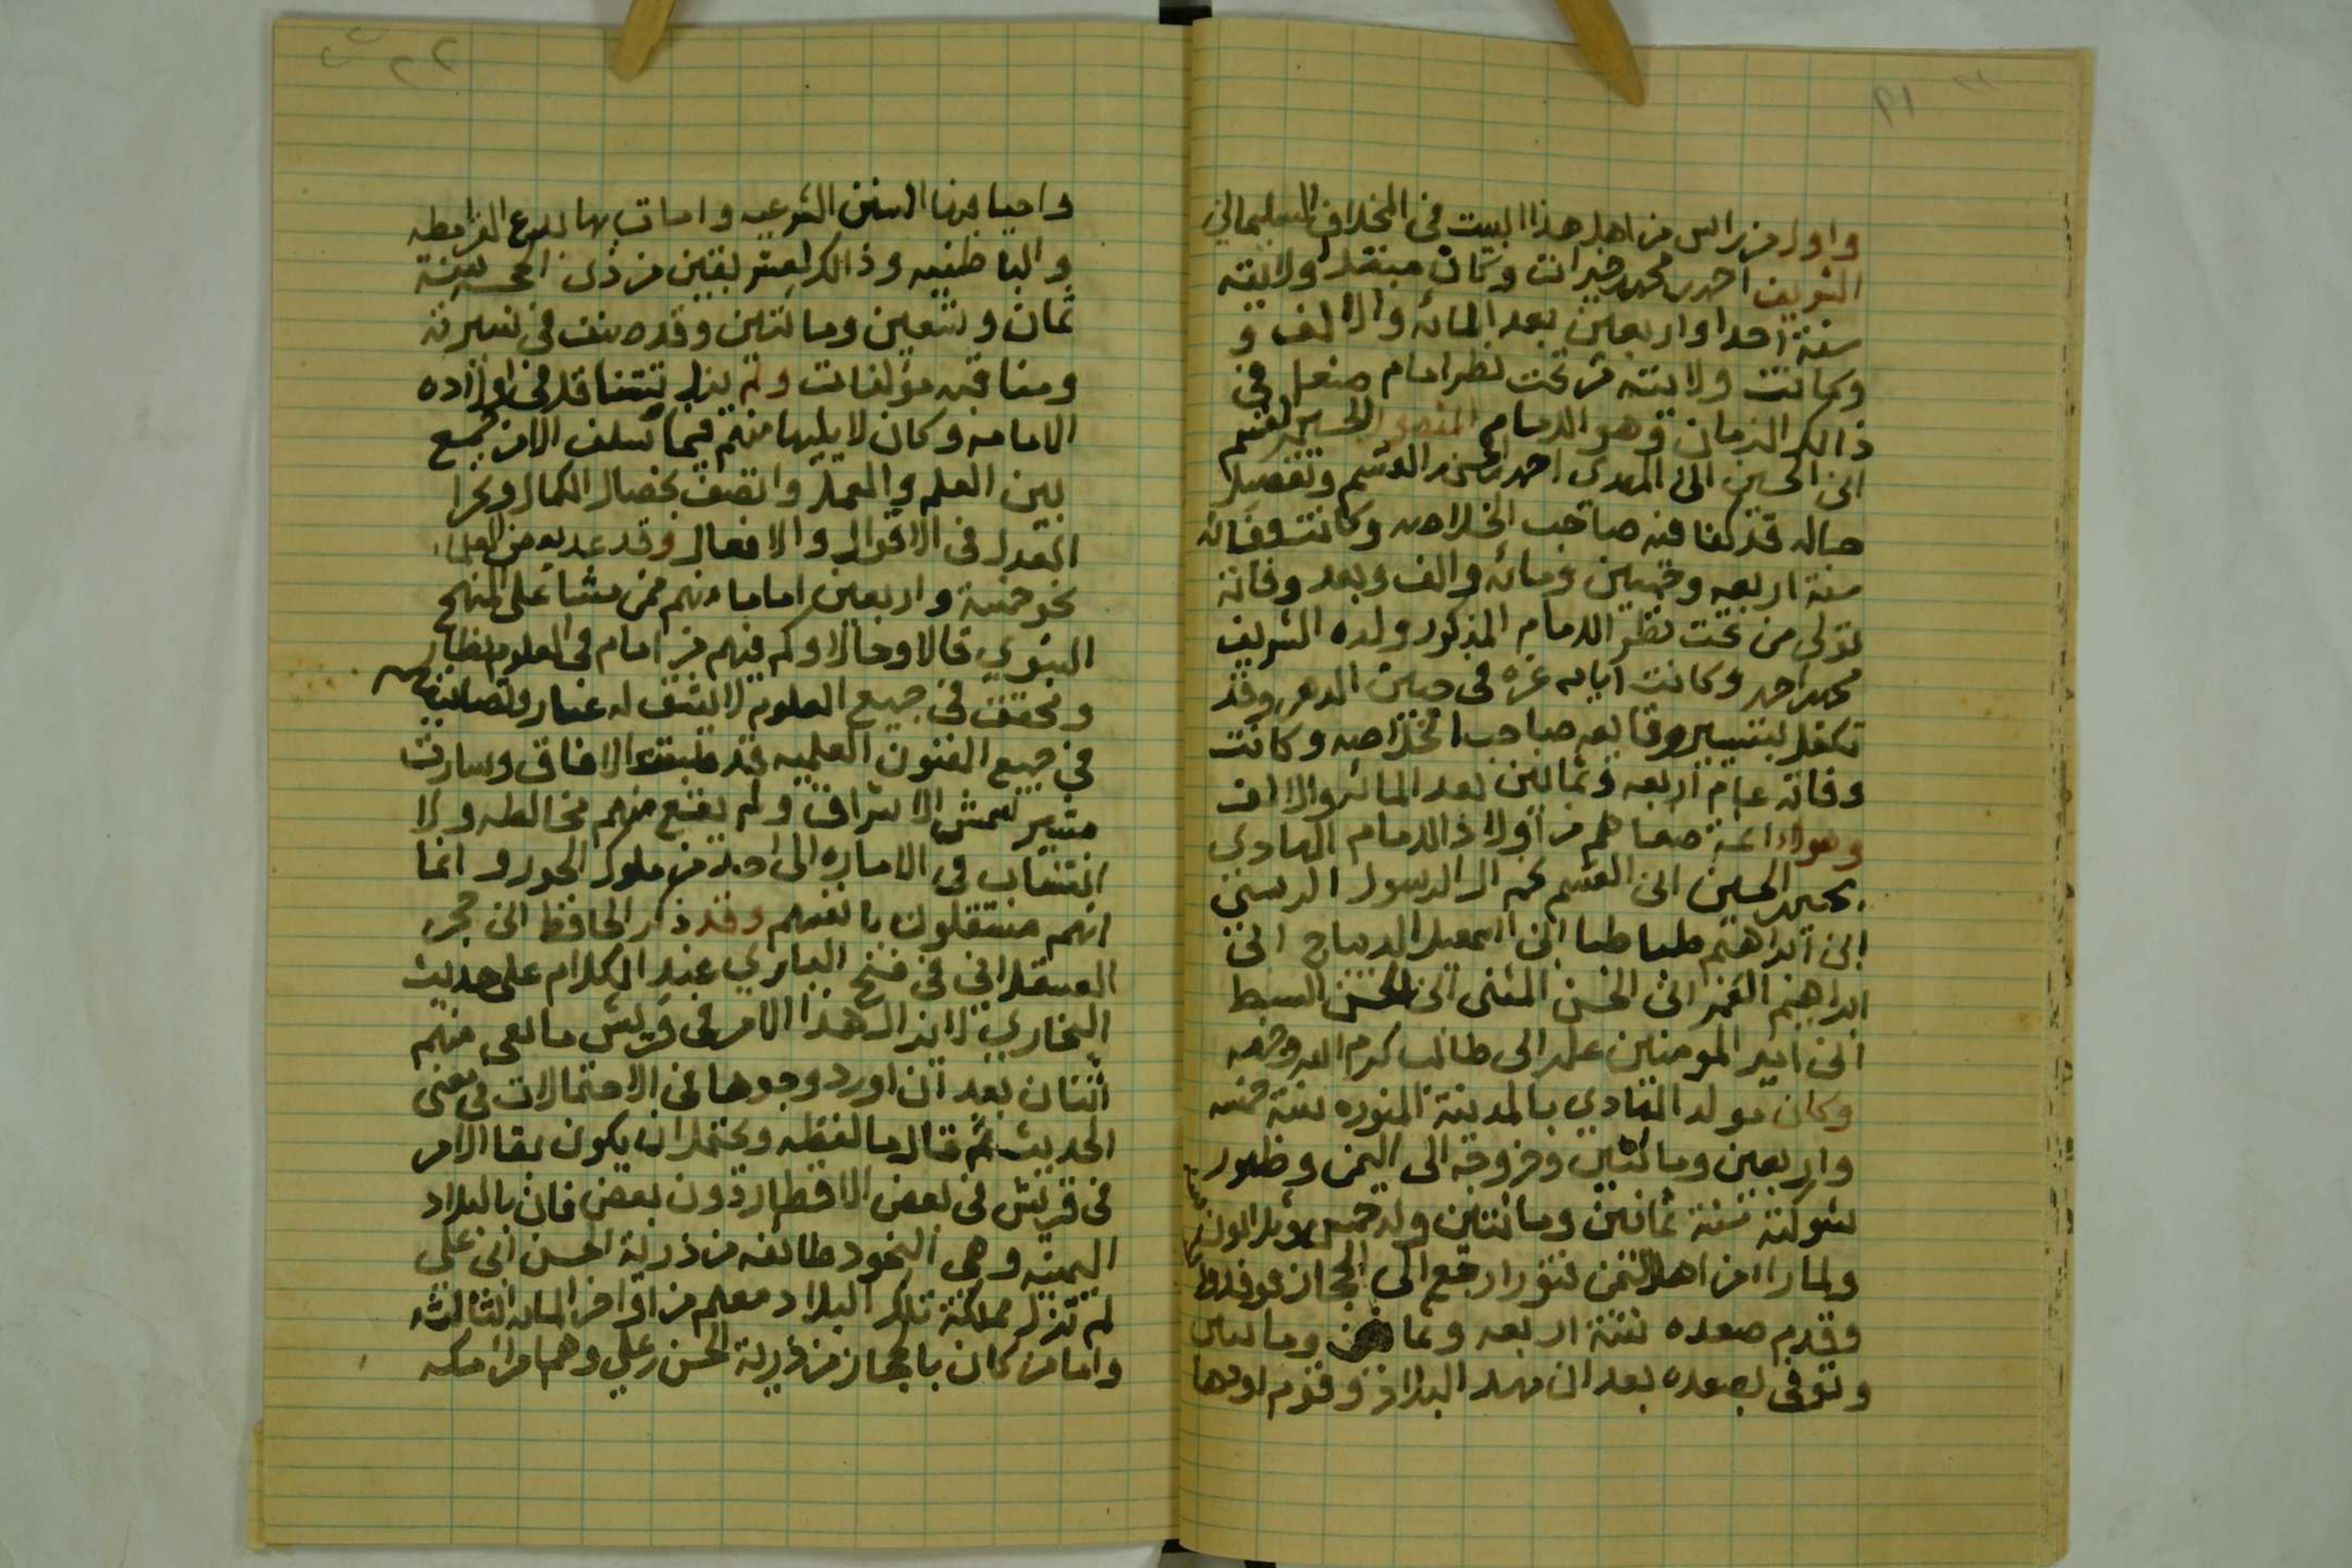 ١٩
واول من راس من اهل هذا البيت في المخلاف السليماني
الشريف احمد بن محمد خيرات وكان مبتدا ولايته
سنة احدا واربعين بعد المائه والالف و
وكانت ولايته من تحت نظر امام صنعا في
ذالك الزمان وهو الامام المنصور الحسين بن القسم
ابن الحسين ابن المهدي احمد بن الحسن بن القسم وتفصيل
حاله قد كفا فيه صاحب الخلاصه وكانت وفاته
سنة اربعه وخمسين ومائه والف وبعد وفاته
تولى من تحت نظر الامام المذكور ولده الشريف
محمد بن احمد وكانت ايامه غره في جبين الدهر وقد
تكفل بتسيير وقايعه صاحب الخلاصه وكانت
وفاته عام اربعه وثمانين بعد المائه والالف
وهولاء ائمة صنعا هم من اولاد الامام الهادي
يحيى بن الحسين ابن القسم نجم ال الرسول الرسي
ابن ابراهيم طباطبا ابن اسمعيل الديباج ابن
ابراهيم الغمر ابن الحسن المثنى ابن الحسن السبط
ابن امير المومنين علي بن ابي طالب كرم الله وجهه
وكان مولد الهادي بالمدينة المنوره سنة خمسه
واربعين ومائتين وخروجه الى اليمن وظهور
شوكته سنة ثمانين ومائتين وله خمس وثلاثون
ولما راا من اهل اليمن نفورا رجع الى الحجاز
وقدم صعده سنة اربعه وثمانين ومائتين
وتوفي بصعده بعد ان مهد البلاد وقوم اودها
واحيا فيها السنن الشرعيه وامات بها بدع القرامطه
والباطنيه وذالك لعشر بقين من ذي الحجه سنة
ثمان وتسعين ومائتين وقد صنف في سيرته
ومناقبه مولفات ولم يزل تتناقل في اولاده
الامامه وكان لا يليها منهم فيما سلف الا من جمع
بين العلم والعمل واتصف بخصال الكمال وتحرا
العدل في الاقوال والافعال وقد عد بعض العلماء
نحو خمسة واربعين اماما منهم ممن مشا على المنهج
النبوي قالا وحالا وكم فيهم من امام في العلوم نظار
ومحقق في جميع العلوم لا يشق له غبار وتصانيفهم
في جميع الفنون العلميه قد طبقت الافاق وسارت
مسير شمس الاشراق ولم يقع منهم مخالطه ولا
انتساب في الاماره الى احد من ملوك الجور وانما
انهم مستقلون بانفسهم وقد ذكر الحافظ ابن حجر
العسقلاني في فتح الباري عند الكلام على حديث
البخاري لا يزال هذا الامر في قريش ما بقي منهم
اثنان بعد ان اورد وجوها من الاحتمالات في معنى
الحديث ثم قال ما لفظه ويحتمل ان يكون بقا الامر
في قريش في بعض الاقطار دون بعض فان بالبلاد
اليمنيه وهي النجود طائفه من ذرية الحسن ابن علي
لم تزل مملكة تلك البلاد معهم من اواخر المائه الثالثه
واما من كان بالحجاز من ذرية الحسن بن علي وهم امراء مكه